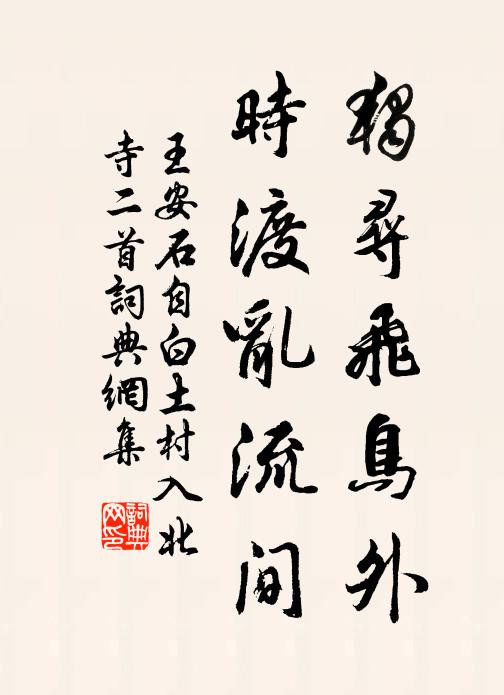 獨尋飛鳥外
時渡亂流間
王安石自白土村入北
寺二首詞典網集
詞典
网印